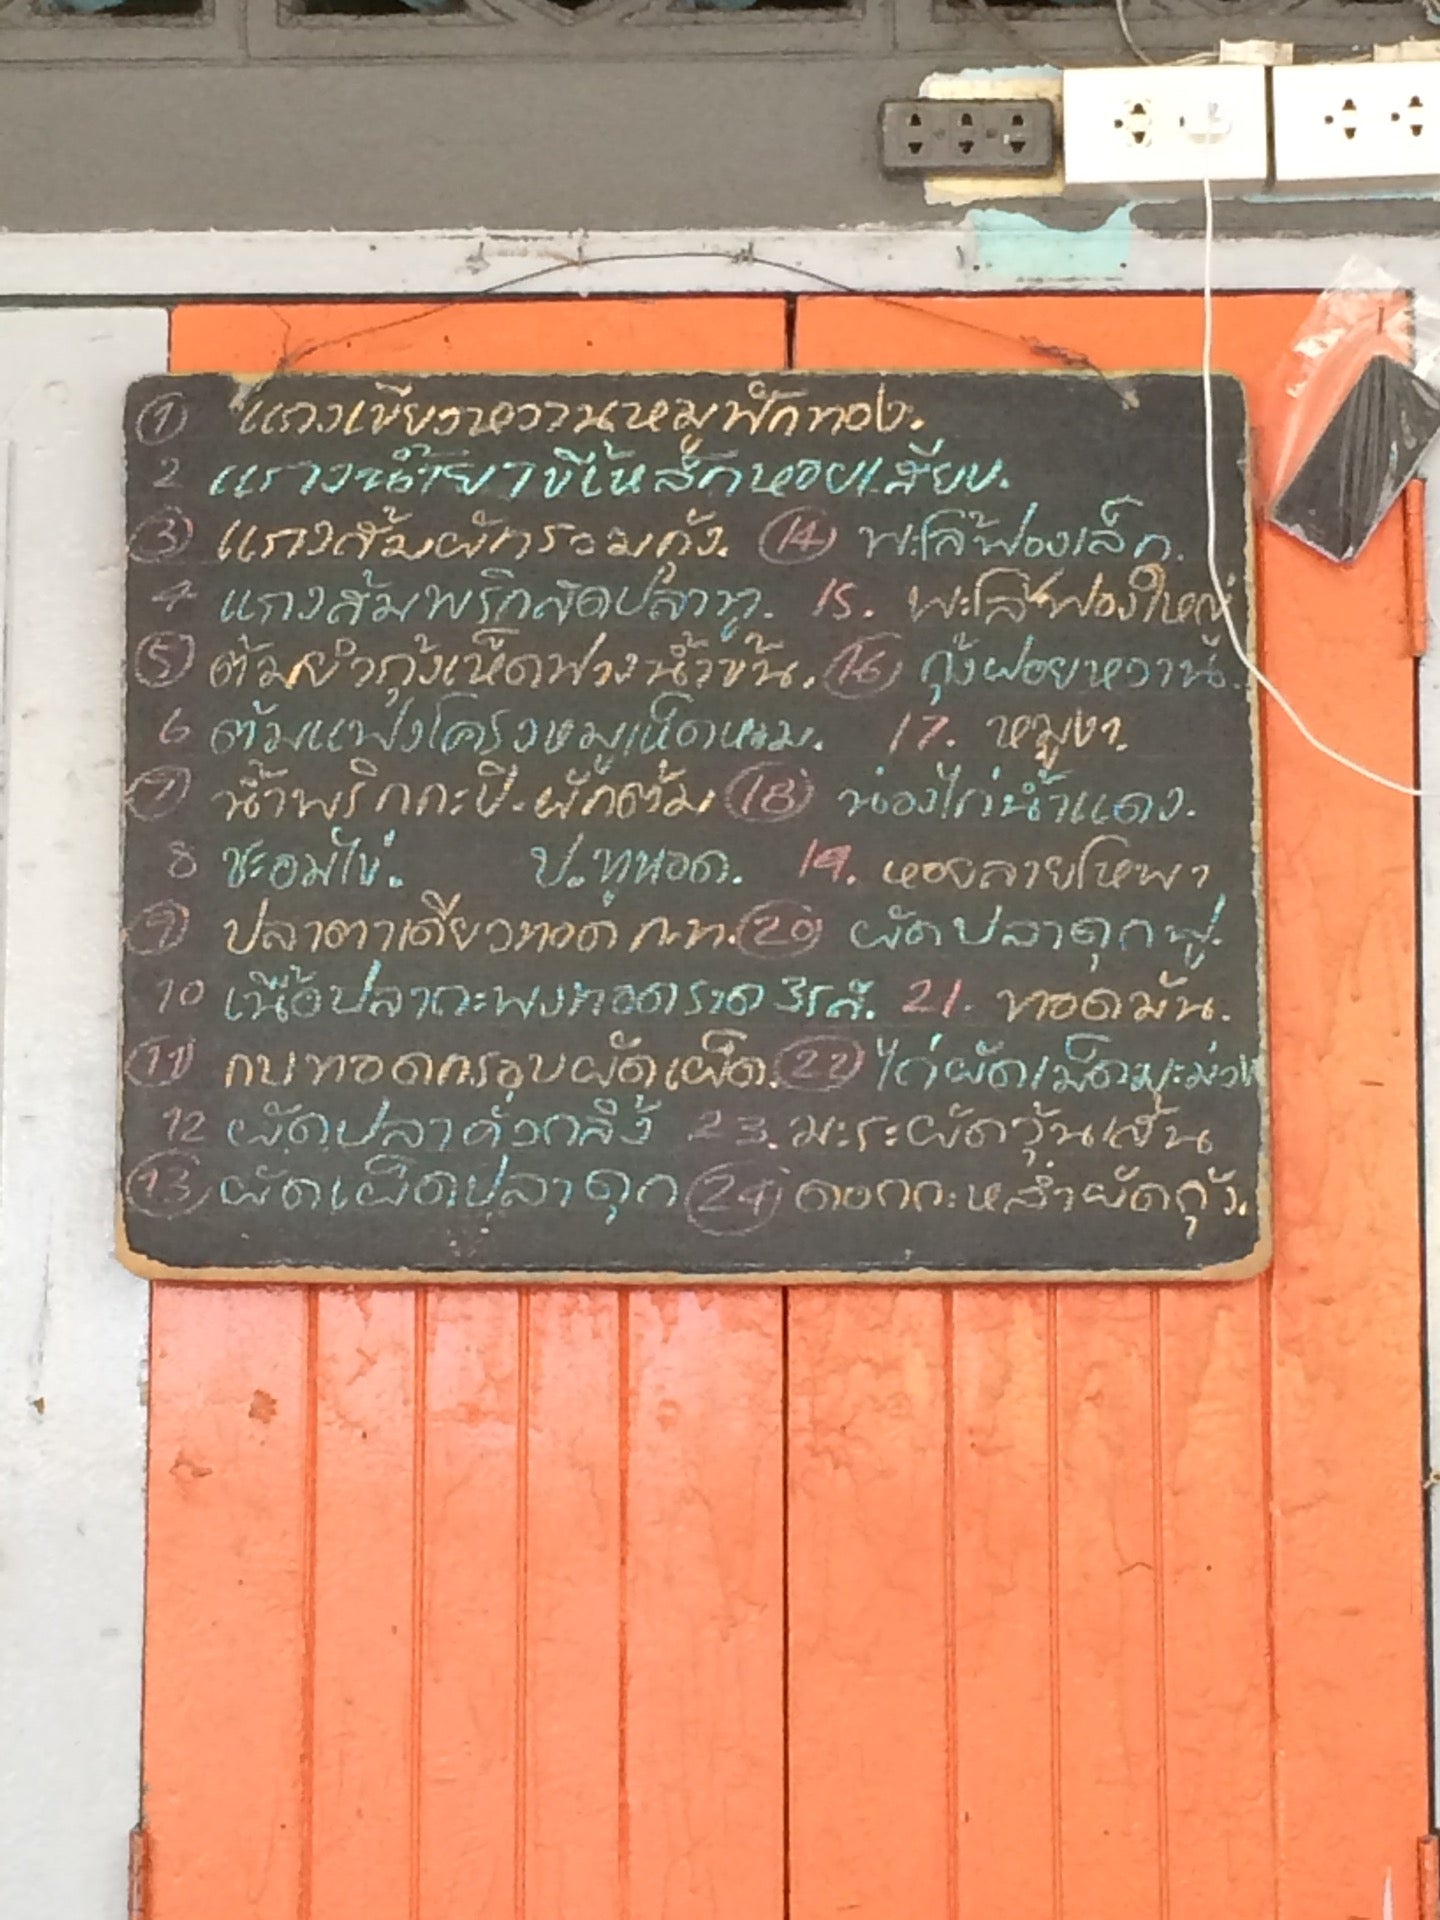 ① แกงเขียวหวานหมูฟักทอง.
2 แกงน้ำยาขี้เหล็กหอยเสียบ.
③ แกงส้มผักรวมกุ้ง. ⑭ พะโล้ฟองเล็ก.
4 แกงส้มพริกสดปลาทู. 15. พะโล้ฟองใหญ่
⑤ ต้มยำกุ้งเห็ดฟางน้ำข้น. ⑯ กุ้งฝอยหวาน.
6 ต้มแฟงโครงหมูเห็ดหอม. 17. หมูงา.
⑦ น้ำพริกกะปิ-ผักต้ม ⑱ น่องไก่น้ำแดง.
8 ชะอมไข่. ป.ทูทอด. 19. หอยลายโหพา
⑨ ปลาตาเดียวทอด ก.ท. ⑳ ผัดปลาดุกฟู.
10 เนื้อปลากะพงทอดราด 3รส. 21. ทอดมัน.
⑪ กบทอดกรอบผัดเผ็ด. ㉒ ไก่ผัดเม็ดมะม่วง
12 ผัดปลาคั่วกลิ้ง 23. มะระผัดวุ้นเส้น
⑬ ผัดเผ็ดปลาดุก ㉔ ดอกกะหล่ำผัดกุ้ง.